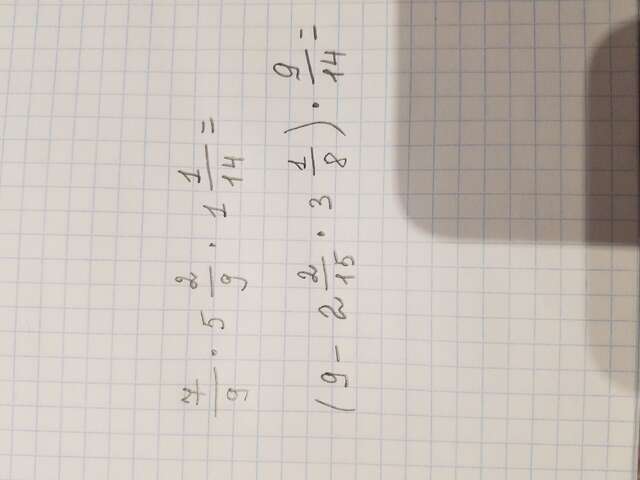 7/9 · 5 2/9 · 1 1/14 =
(9 - 2 2/15 · 3 1/8) · 9/14 =